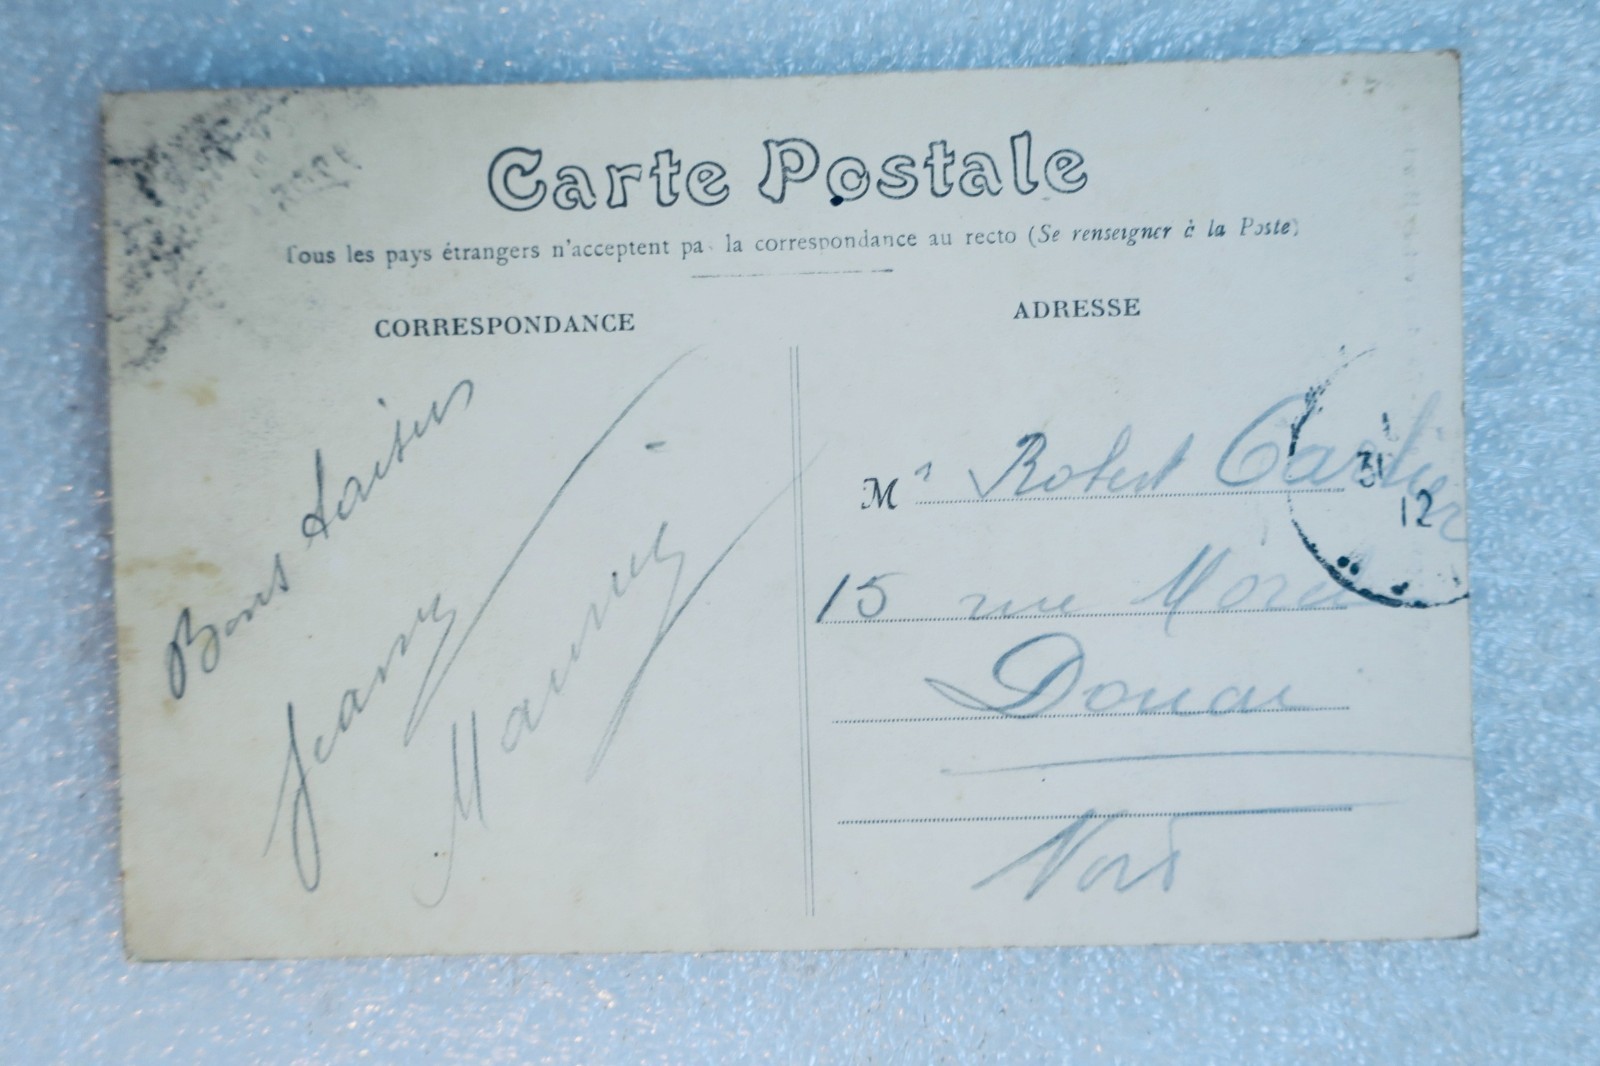 Carte Postale
Tous les pays étrangers n'acceptent pas la correspondance au recto (Se renseigner à la Poste)
CORRESPONDANCE
ADRESSE
Bons baisers
Jeanne
Mr Robert Cartier
15 rue
Douai
Nord
31
12